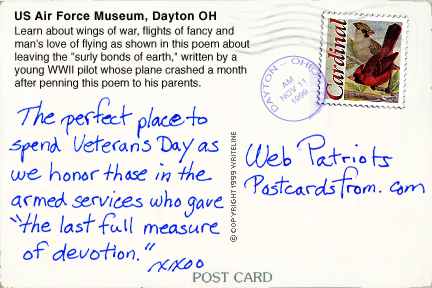 US Air Force Museum, Dayton OH
Learn about wings of war, flights of fancy and
man's love of flying as shown in this poem about
leaving the "surly bonds of earth," written by a
young WWII pilot whose plane crashed a month
after penning this poem to his parents.
The perfect place to
spend Veterans Day as
we honor those in the
armed services who gave
"the last full measure
of devotion."
xxoo
© COPYRIGHT 1999 WRITELINE
DAYTON - OHIO
AM
NOV 11
1999
Cardinal
Web Patriots
Postcardsfrom.com
POST CARD